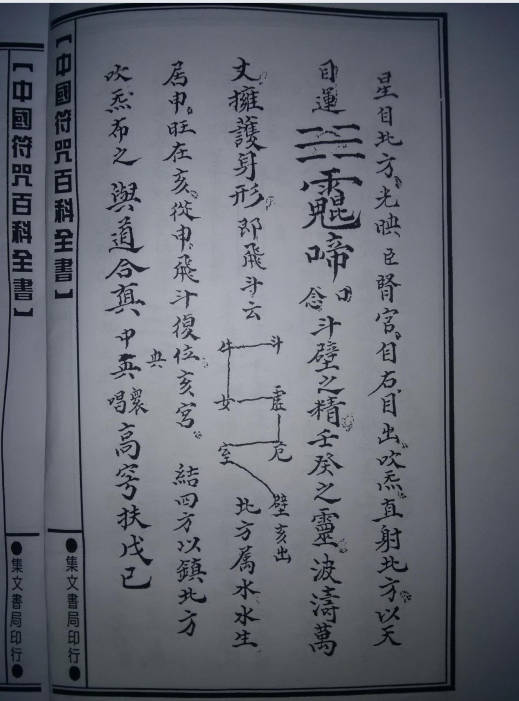 星自北方。光映臣腎宮。自右目出。吹炁直射北方以天
目運
啼 口念斗壁之精。壬癸之靈。波濤萬
丈。擁護身形。即飛斗云
斗 牛 女 虛 危 室 壁亥出
北方属水。水生
居申。旺在亥。從申。飛斗復位亥宮。 結四方以鎮北方
吹炁布之 與道合真 中 與衆唱高穹扶戊己
【中國符咒百科全書】
●集文書局印行●
【中國符咒百科全書】
●集文書局印行●